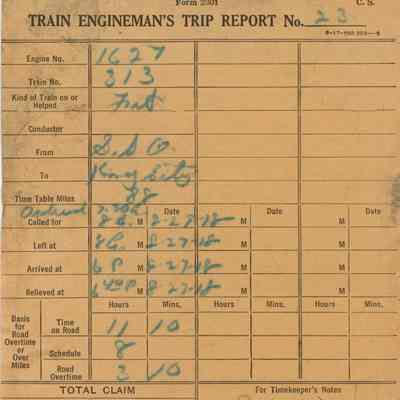 Form 2301 C. S.
TRAIN ENGINEMAN'S TRIP REPORT No. 23
Engine No. 1627
Train No. 313
Kind of Train on or Helped Frt
Conductor
From S. S. O.
To King City
Time Table Miles 88
Ordered 7:30 A Date Date Date
Called for 8 A. M 8-27-18 M M
Left at 8 A. M 8-27-18 M M
Arrived at 6 P. M 8-27-18 M M
Relieved at 6 40 P M 8-27-18 M M
Hours Mins. Hours Mins. Hours Mins.
Basis for Road Overtime or Over Miles
Time on Road 11 10
Schedule 8
Road Overtime 3 10
TOTAL CLAIM For Timekeeper's Notes